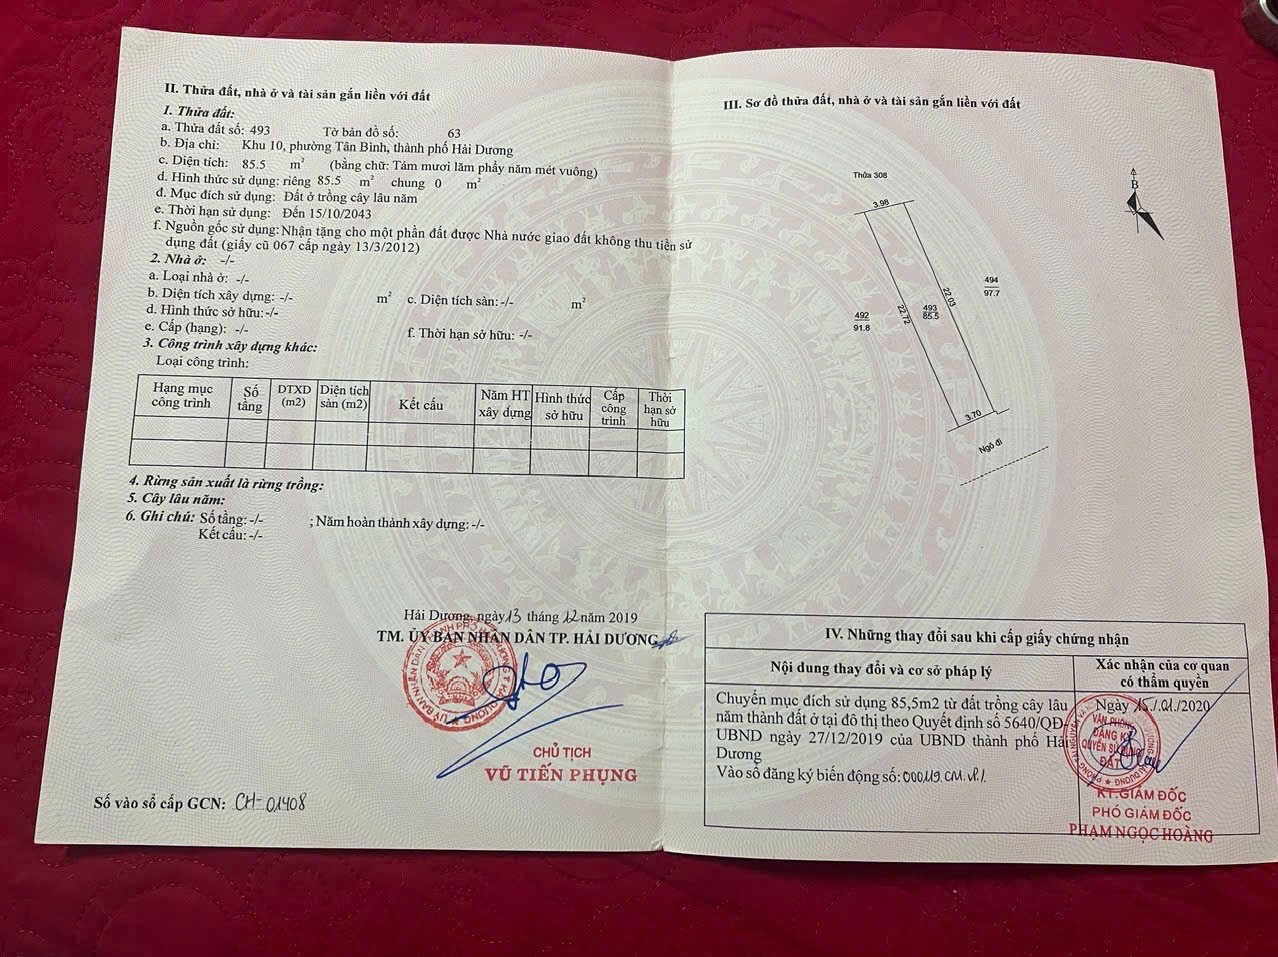 II. Thửa đất, nhà ở và tài sản gắn liền với đất
1. Thửa đất:
a. Thửa đất số: 493 Tờ bản đồ số: 63
b. Địa chỉ: Khu 10, phường Tân Bình, thành phố Hải Dương
c. Diện tích: 85.5 m² (bằng chữ: Tám mươi lăm phẩy năm mét vuông)
d. Hình thức sử dụng: riêng 85.5 m² chung 0 m²
đ. Mục đích sử dụng: Đất ở trồng cây lâu năm
e. Thời hạn sử dụng: Đến 15/10/2043
f. Nguồn gốc sử dụng: Nhận tặng cho một phần đất được Nhà nước giao đất không thu tiền sử
dụng đất (giấy cũ 067 cấp ngày 13/3/2012)
2. Nhà ở: -/-
a. Loại nhà ở: -/-
b. Diện tích xây dựng: -/- m² c. Diện tích sàn: -/- m²
d. Hình thức sở hữu:-/-
e. Cấp (hạng): -/- f. Thời hạn sở hữu: -/-
3. Công trình xây dựng khác:
Loại công trình:
Hạng mục công trình Số tầng DTXD (m2) Diện tích sàn (m2) Kết cấu Năm HT xây dựng Hình thức sở hữu Cấp công trình Thời hạn sở hữu
4. Rừng sản xuất là rừng trồng:
5. Cây lâu năm:
6. Ghi chú: Số tầng: -/- ; Năm hoàn thành xây dựng: -/-
Kết cấu: -/-
Hải Dương, ngày 13 tháng 12 năm 2019
TM. ỦY BAN NHÂN DÂN TP. HẢI DƯƠNG
CHỦ TỊCH
VŨ TIẾN PHỤNG
Số vào sổ cấp GCN: CH-01408
III. Sơ đồ thửa đất, nhà ở và tài sản gắn liền với đất
Thửa 308
B
3.98
494
97.7
22.03
493
85.5
22.72
492
91.8
3.70
Ngõ đi
IV. Những thay đổi sau khi cấp giấy chứng nhận
Nội dung thay đổi và cơ sở pháp lý
Xác nhận của cơ quan
có thẩm quyền
Chuyển mục đích sử dụng 85,5m2 từ đất trồng cây lâu
năm thành đất ở tại đô thị theo Quyết định số 5640/QĐ-
UBND ngày 27/12/2019 của UBND thành phố Hải
Dương
Vào sổ đăng ký biến động số: 00019.CM.Q1
Ngày 15/01/2020
VĂN PHÒNG
ĐĂNG KÝ
QUYỀN SỬ DỤNG
ĐẤT
KT.GIÁM ĐỐC
PHÓ GIÁM ĐỐC
PHẠM NGỌC HOÀNG